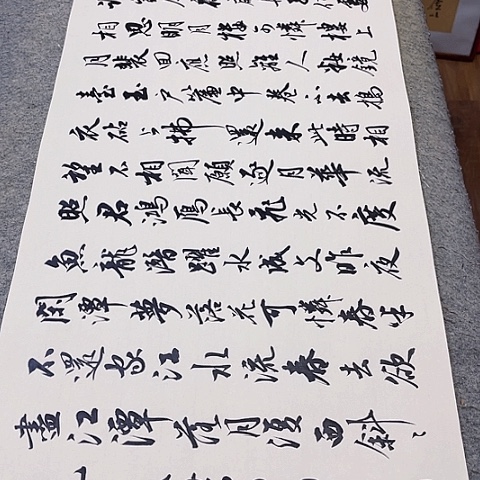 相思明月樓可憐樓上
月裴回應照離人妝鏡
臺玉户簾中卷不去搗
衣砧上拂還來此時相
望不相聞願逐月華流
照君鴻鴈長飛光不度
魚龍潛躍水成文昨夜
閑潭夢落花可憐春半
不還家江水流春去欲
盡江潭落月復西斜〻